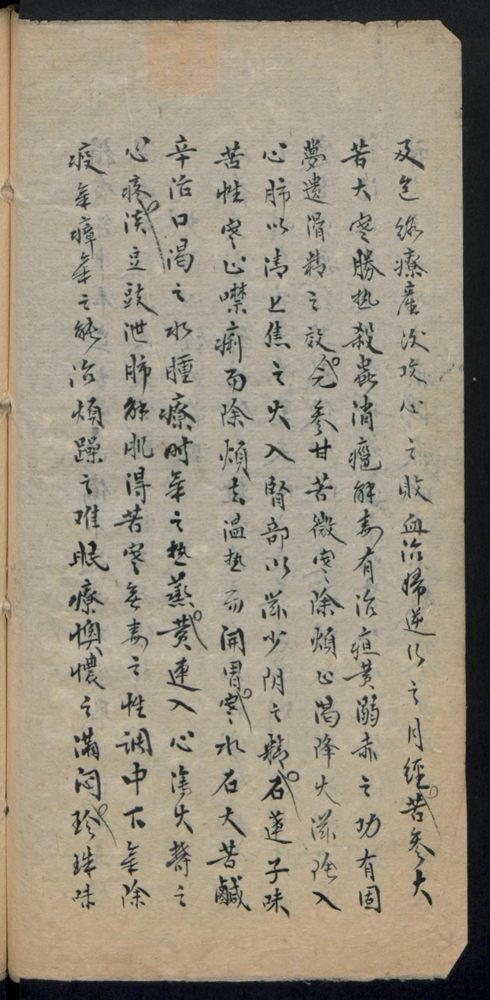 及包絡療產後攻心之敗血治婦逆行之月經苦參大
苦大寒勝热殺蟲消癰解毒有治疸黄溺赤之功有固
夢遗滑精之效元參甘苦微寒除煩止渴降火滋陰入
心肺以清上焦之火入腎部以滋少阴之精石蓮子味
苦性寒止噤痢而除煩去温热而開胃寒水石大苦鹹
辛治口渴之水腫療时氣之热蒸黄連入心瀉火鬱之
心疼淡豆豉泄肺解肌得苦寒無毒之性調中下氣除
疫氣瘴氣之能治煩躁之难眠療懊憹之滿闷珍珠味